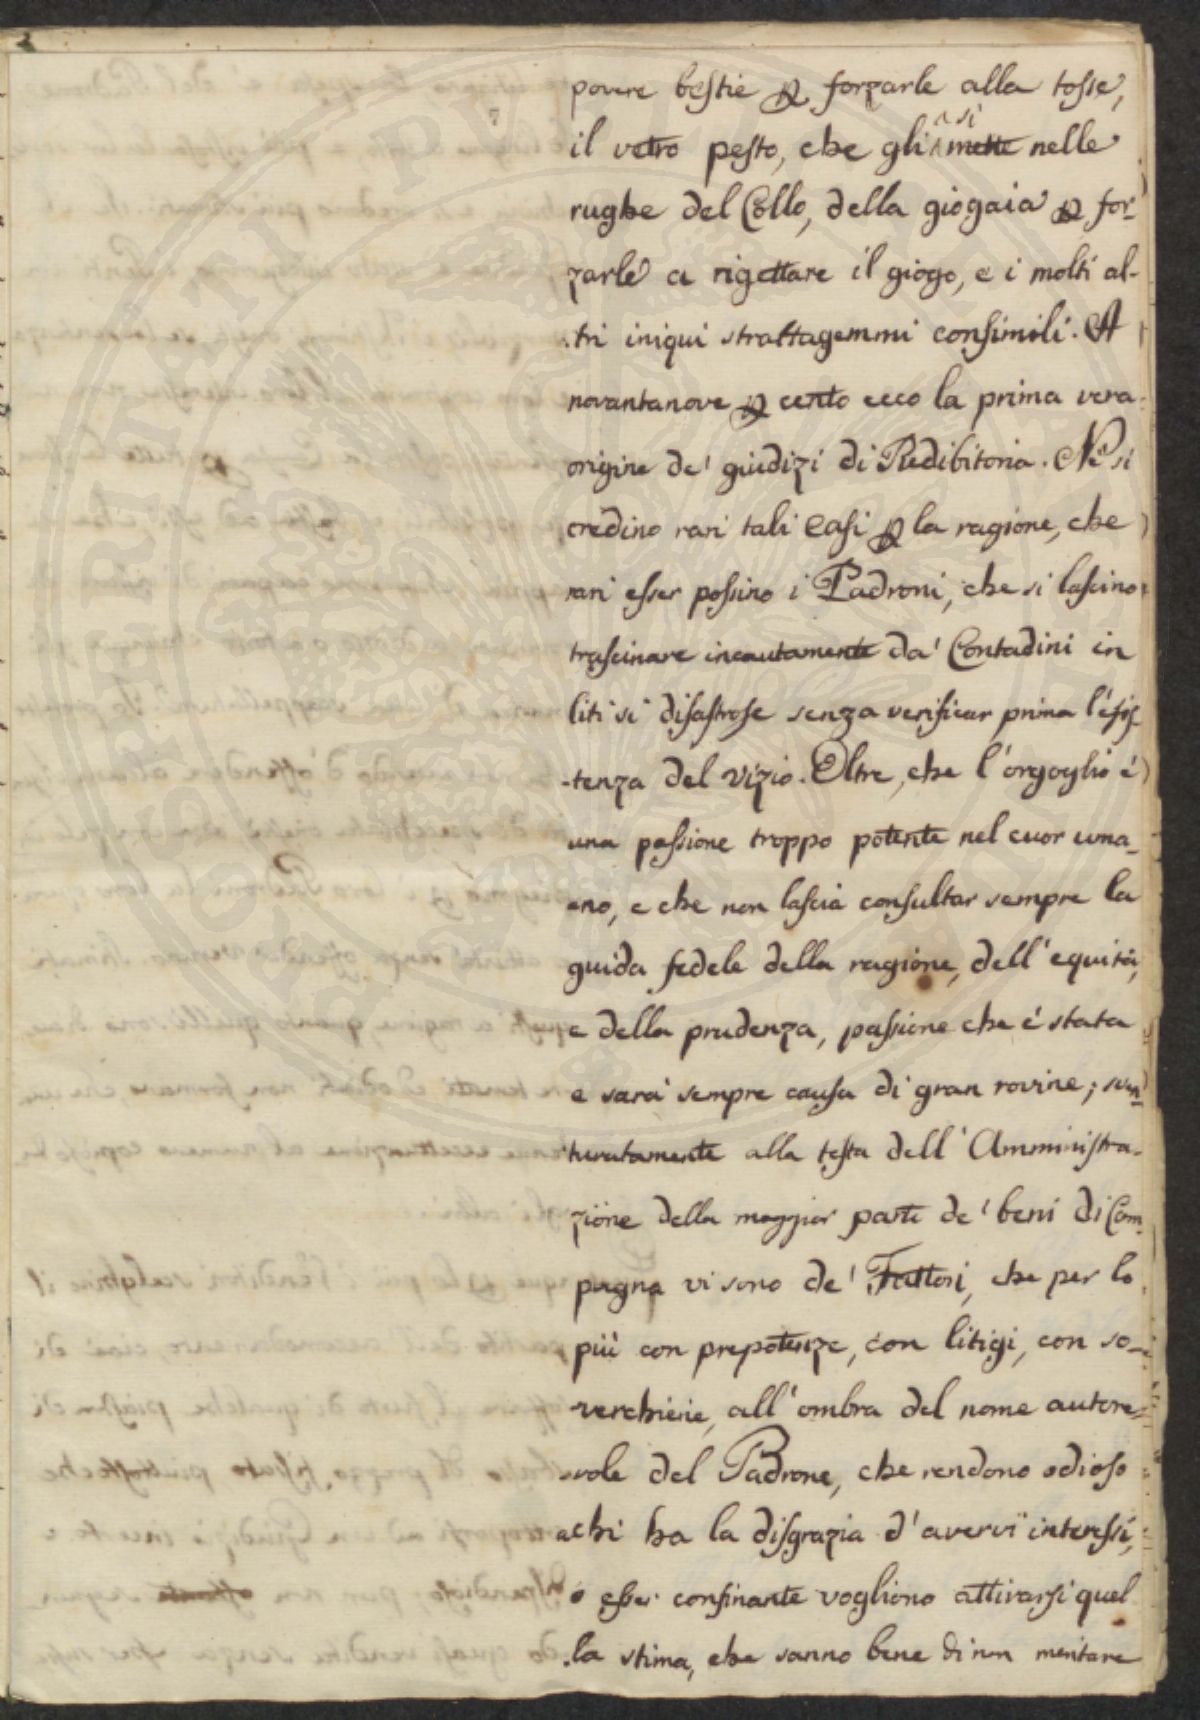 povere bestie ꝑ forzarle alla tosse,
il vetro pesto, che gli si mette nelle
rughe del Collo, della giogaia ꝑ for-
zarle a rigettare il giogo, e i molti al-
tri iniqui strattagemmi consimili. A
novantanove ꝑ cento ecco la prima vera
origine de' giudizi di Redibitoria. Ne si
credino rari tali Casi ꝑ la ragione, che
rari esser possino i Padroni, che si lascino
trascinare incautamente da' Contadini in
liti si disastrose senza verificar prima l'esis
-tenza del vizio. Oltre, che l'orgoglio é
una passione troppo potente nel cuor uma-
no, e che non lascia consultar sempre la
guida fedele della ragione, dell'equità,
e della prudenza, passione che é stata
e sarà sempre causa di gran rovine; sven-
turatamente alla testa dell'Amministra-
zione della maggior parte de' beni di Cam-
pagna vi sono de' Fattori, che per lo
più con prepotenze, con litigi, con so-
verchierie, all'ombra del nome autore-
vole del Padrone, che rendono odioso
a chi ha la disgrazia d'avervi interessi,
o esser confinante vogliono attirarsi quel
la stima, che sanno bene di non meritare